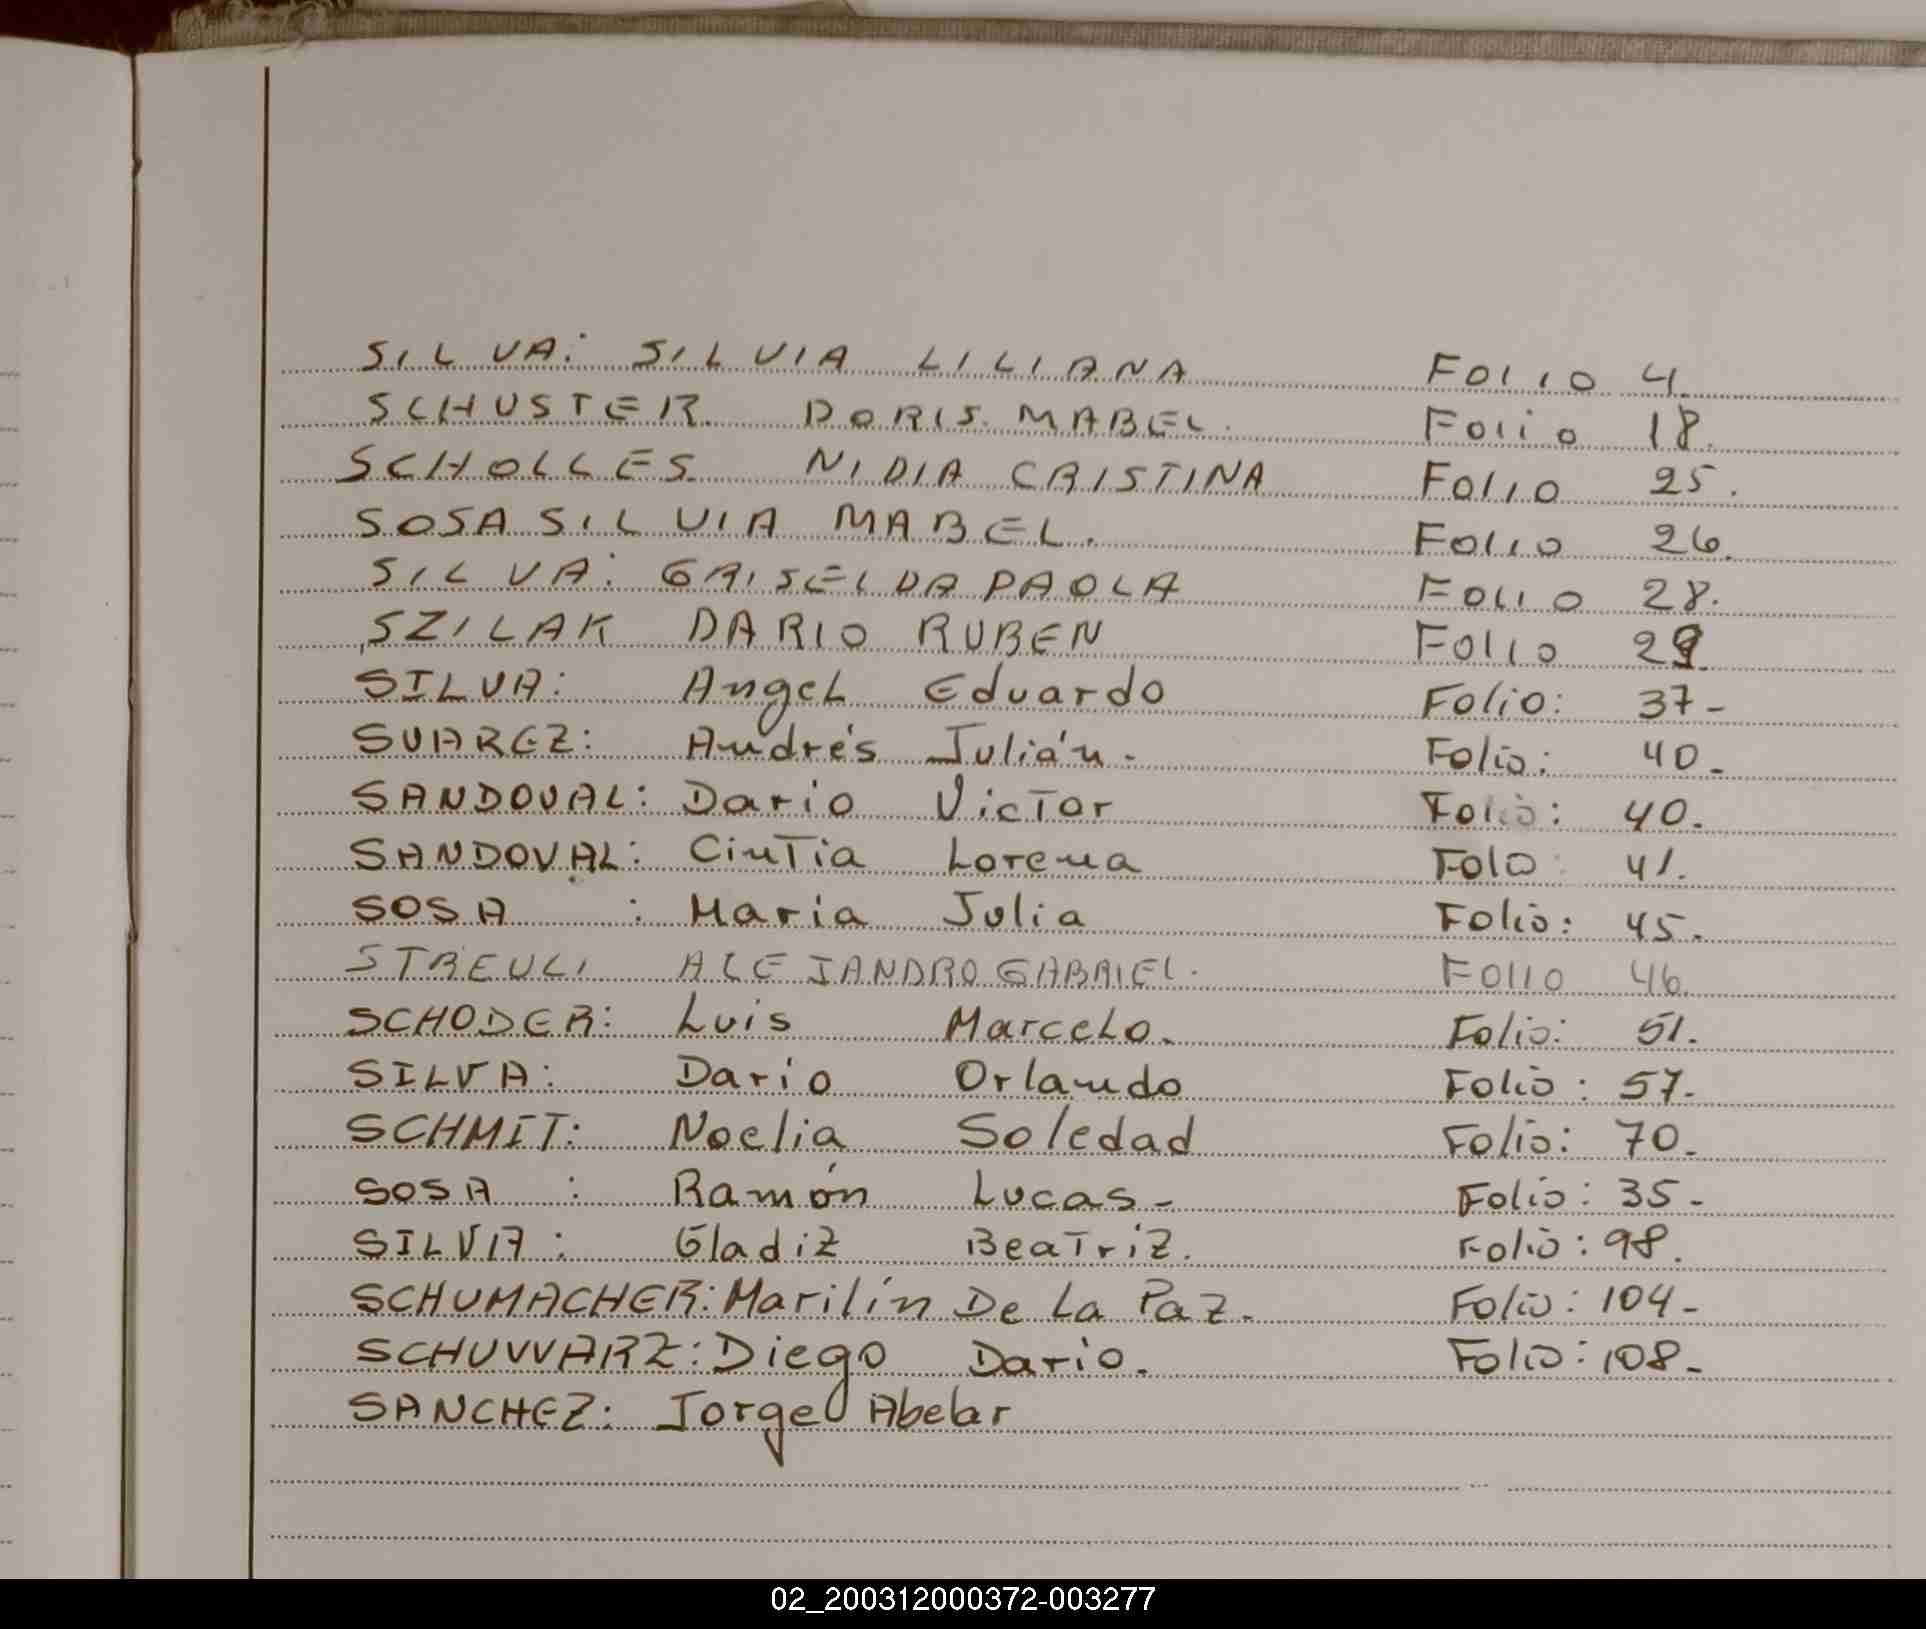 SILVA: SILVIA LILIANA Folio 4.
SCHUSTER. DORIS. MABEL. Folio 18.
SCHOLLES NIDIA CRISTINA Folio 25.
SOSA SILVIA MABEL. Folio 26.
SILVA: GRISELDA PAOLA Folio 28.
SZILAK DARIO RUBEN Folio 29.
SILVA: Angel Eduardo Folio: 37-
SUAREZ: Andrés Julián. Folio: 40-
SANDOVAL: Dario Victor Folio: 40.
SANDOVAL: Cintia Lorena Folo: 41.
SOSA : Maria Julia Folio: 45.
STREULI ALEJANDRO GABRIEL. FOLIO 46.
SCHODER: Luis Marcelo. Folio: 51.
SILVA: Dario Orlando Folio: 57.
SCHMIT: Noelia Soledad Folio: 70.
SOSA : Ramón Lucas- Folio: 35-
SILVA: Gladiz Beatriz. Folio: 98.
SCHUMACHER: Marilín De La Paz. Folio: 104-
SCHUWARZ: Diego Dario. Folio: 108-
SANCHEZ: Jorge Abelar
02_200312000372-003277